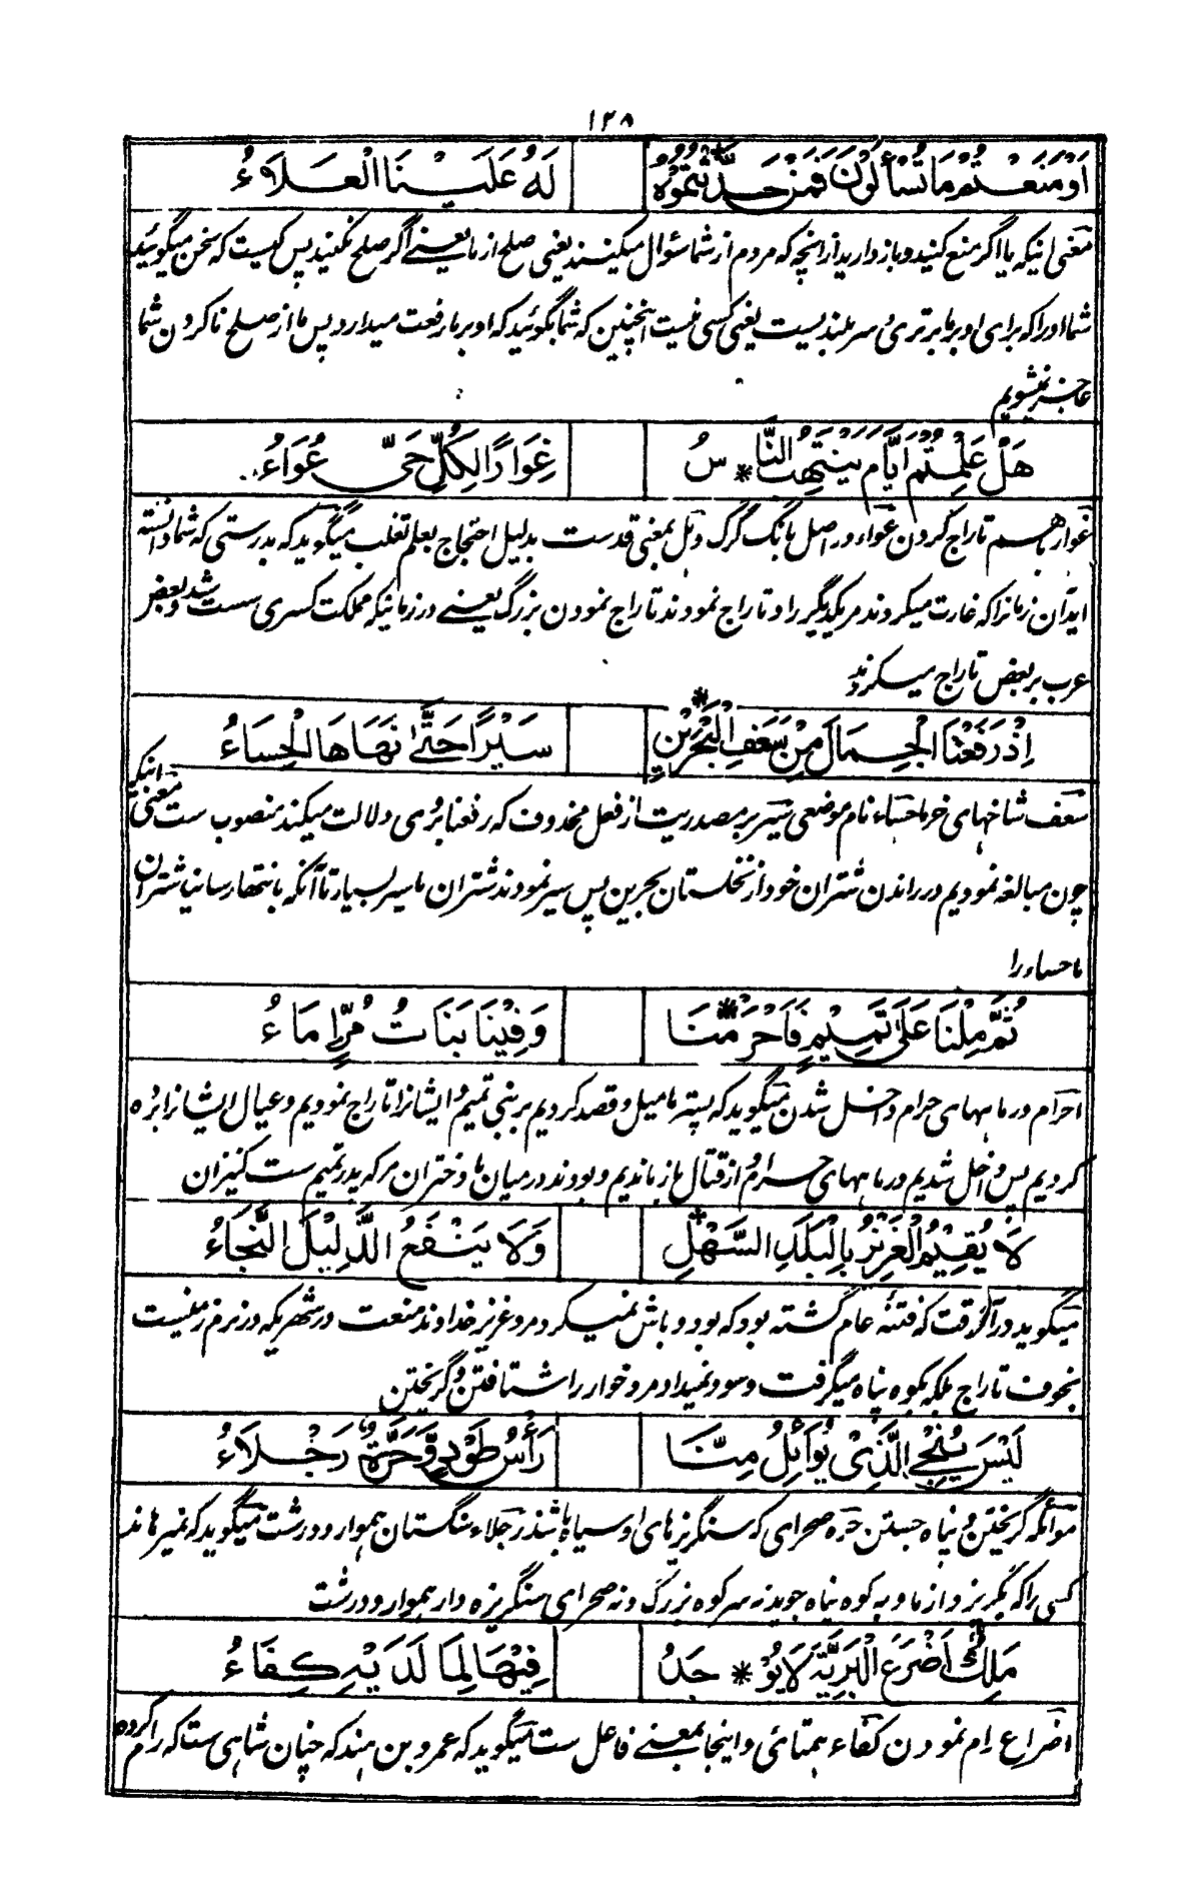 ۱۳۸
اَوْ مَنَعْتُمْ مَا تُسْأَلُوْنَ فَمَنْ حَدَّثْتُمُوْهُ لَهُ عَلَيْنَا الْعَلَاءُ
معنی اینکه یا اگر منع کنید و باز دارید از انچه که مردم از شما سؤال میکنند یعنی صلح از ما یعنے اگر صلح نکنید پس کیست که سخن میگوئید
شما او را که برای او بر ما برتری و سر بلندیست یعنی کسی نیست اینچنین که شما بگوئید که او بر ما رفعت میدارد پس ما از صلح ناکردن شما
عاجز نمیشویم
هَلْ عَلِمْتُمْ اَيَّامَ يُنْتَهَبُ النَّا * سُ غِوَارًا لِكُلِّ حَىٍّ عُوَاءُ
غوار باهم تاراج کردن عواء در اصل بانگ گرگ و هل بمعنی قدست بدلیل احتجاج بعلم تغلب میگوید که بدرستی که شما دانسته
اید آن زمانرا که غارت میکردند مر یکدیگر را و تاراج نمودند تاراج نمودن بزرگ یعنے در زمانیکه مملکت کسری سست شد و بعض
عرب بر بعض تاراج میکردند
اِذْ رَفَعْنَا الْجِمَالَ مِنْ سَعَفِ الْبَحْرَيْنِ * سَيْرًا حَتّٰى نَهَاهَا الْحِسَاءُ
سعف شاخهای خرما حساء نام موضعی سیر بر مصدریت از فعل محذوف که رفعنا بروی دلالت میکند منصوب ست معنی اینکه
چون مبالغه نمودیم در راندن شتران خود از نخلستان بحرین پس سیر نمودند شتران ما سیر بسیار تا آنکه بانتها رسانید شتران
ما حساء را
ثُمَّ مِلْنَا عَلٰى تَمِيْمٍ فَاَحْرَمْنَا * وَفِيْنَا بَنَاتُ مُرٍّ اِمَاءُ
احرام در ماههای حرام داخل شدن میگوید که پستر ما میل و قصد کردیم بر بنی تمیم و ایشانرا تاراج نمودیم و عیال ایشانرا برده
کردیم پس داخل شدیم در ماههای حرام و از قتال باز ماندیم و بودند در میان ما دختران مر که پدر تمیم ست کنیزان
لَا يُقِيْمُ الْعَزِيْزُ بِالْبَلَدِ السَّهْلِ * وَلَا يَنْفَعُ الذَّلِيْلَ النَّجَاءُ
میگوید در آنوقت که فتنه عام گشته بود که بود و باش نمیکرد مرد عزیز خداوند منعت در شهریکه در نرم زمینست
بخوف تاراج بلکه بکوه پناه میگرفت و سود نمیداد مرد خوار را شتافتن و گریختن
لَيْسَ يُنْجِى الَّذِىْ يُوَائِلُ مِنَّا رَأْسُ طَوْدٍ وَّحَرَّةٌ رَجْلَاءُ
موائله گریختن و پناه جستن حره صحرای که سنگریزهای او سیاه باشد رجلاء سنگستان هموار و درشت میگوید که نمیرهاند
کسی را که بگریزد از ما و به کوه پناه جوید نه سر کوه بزرگ و نه صحرای سنگریزه دار هموار و درشت
مَلِكٌ اَضْرَعَ الْبَرِيَّةَ لَا يُوْ * جَدُ فِيْهَا لِمَا لَدَيْهِ كِفَاءُ
اضراع رام نمودن کفاء همتائی و اینجا بمعنے فاعل ست میگوید که عمرو بن هند که چنان شاهی ست که رام کرده